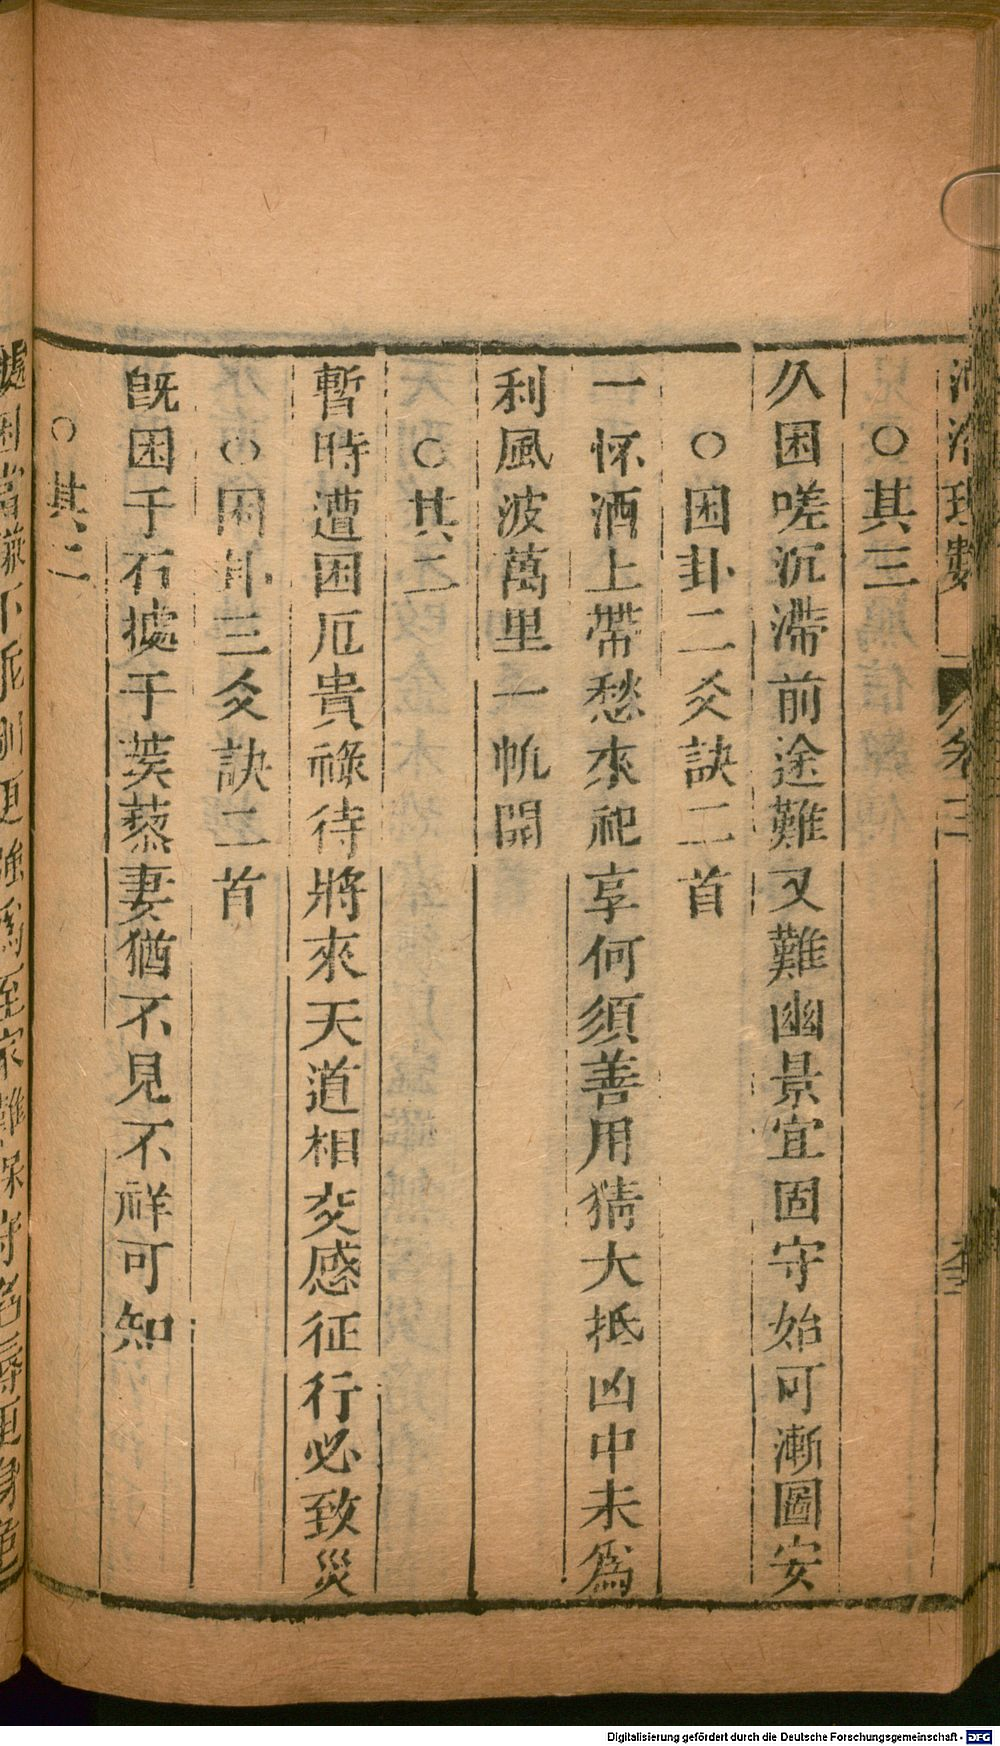 河洛理數 卷三
○其三
久困嗟沉滯前途難又難幽景宜固守始可漸圖安
○困卦二爻訣二首
一怀酒上帶愁來祀享何須善用猜大抵凶中未爲
利風波萬里一帆開
○其二
暫時遭困厄貴祿待將來天道相交感征行必致災
○困卦三爻訣二首
旣困于石據于蒺藜妻猶不見不祥可知
○其二
Digitalisierung gefördert durch die Deutsche Forschungsgemeinschaft - DFG